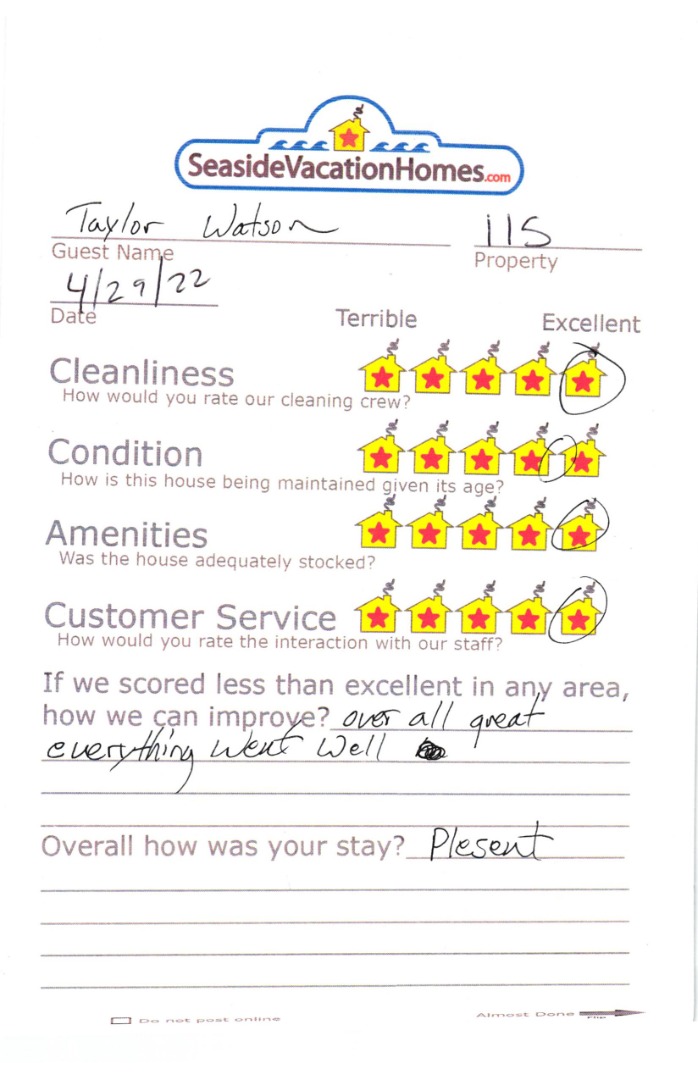 SeasideVacationHomes.com
Taylor Watson 115
Guest Name Property
4/29/22
Date Terrible Excellent
Cleanliness
How would you rate our cleaning crew?
Condition
How is this house being maintained given its age?
Amenities
Was the house adequately stocked?
Customer Service
How would you rate the interaction with our staff?
If we scored less than excellent in any area,
how we can improve? over all great
everything went well
Overall how was your stay? Plesent
Do not post online Almost Done Flip